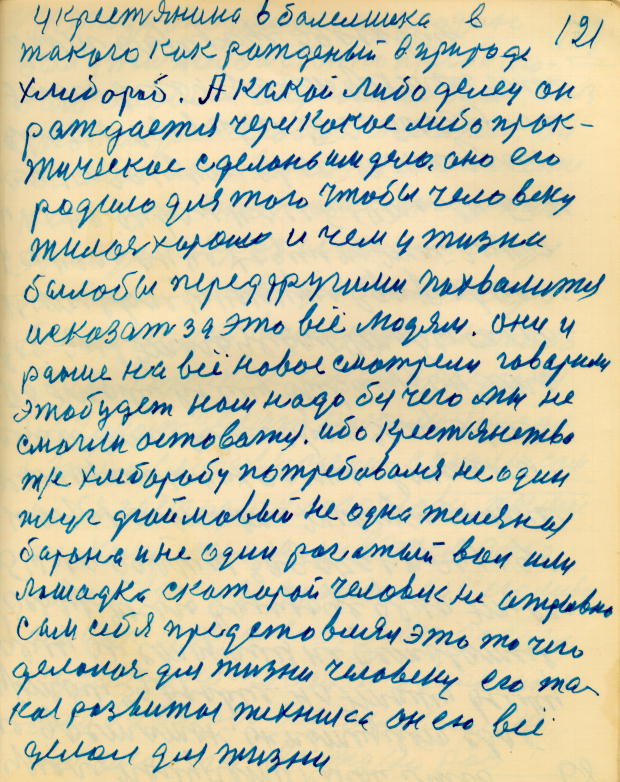 у крестянина в болелшека в 121
такого как рожденый в природе
хлибороб. А какой либо делец он
рождается через какое либо прак-
тическое сделоным дело. оно его
родило для того чтобы человеку
жилося хорошо и чем у жизни
былобы перед другими похвалится
и сказат за это всё людям. они и
ранше на всё новое смотрели говарили
это будет нам надо без чего мы не
смогли остоватся. ибо крестянство
же хлиборобу потребовался не один
плуг дюймовый не одна железная
барона и не один рогатый вол или
лошадка с каторой человек не отривно
сам себя предстовлял это то чего
делолося для жизни человеку его та-
кая развитая техника он ею всё
делал для жизни